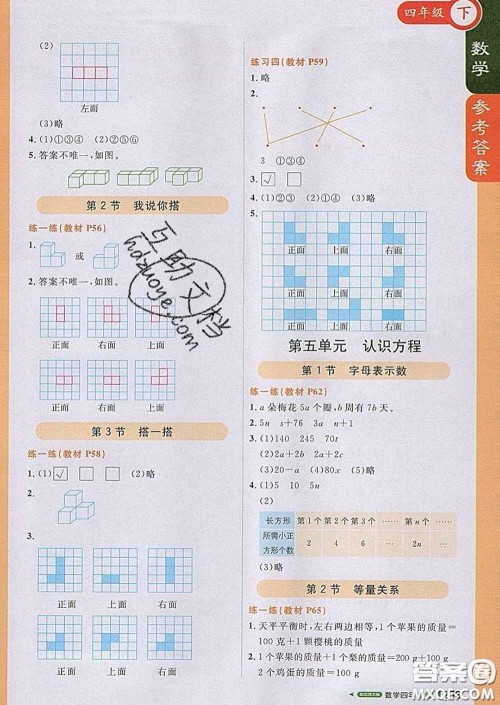 四年级 下
数学
参考答案
(2)
左面
(3)略
4. (1)①③④ (2)②⑤⑥
5. 答案不唯一,如图。
第2节 我说你搭
练一练(教材 P56)
1. 或
2. 答案不唯一,如图。
正面 右面 上面
正面 右面 上面
第3节 搭一搭
练一练(教材 P58)
1. (1)☑ □ □ (2)略
2.
3.
正面 上面 右面
正面 上面 右面
练习四(教材 P59)
1. 略
2.
3 ①③④
3. ☑ □
4. 略
5.
正面 上面 右面
正面 上面 右面
第五单元 认识方程
第1节 字母表示数
练一练(教材 P62)
1. a朵梅花5a个瓣,b周有7b天。
2. 5n s+76 3x a+b+c
3. (1)140 245 70t
(2)2a+2b 2a+2c
(3)20-a (4)80t (5)略
4. (1)5 10 5n
(2)
长方形 第1个 第2个 第3个 …… 第n个 ……
所需小正方形个数 2 4 6 …… ……
(3)略
第2节 等量关系
练一练(教材 P65)
1. 天平平衡时,左右两边相等,1个苹果的质量=
100克+1颗樱桃的质量
2. 1个苹果的质量+1个梨的质量=200g+100g
2个鸡蛋的质量=100g
数学四年
互助文档
hdzuoye.com
答案圈
MXQE.COM